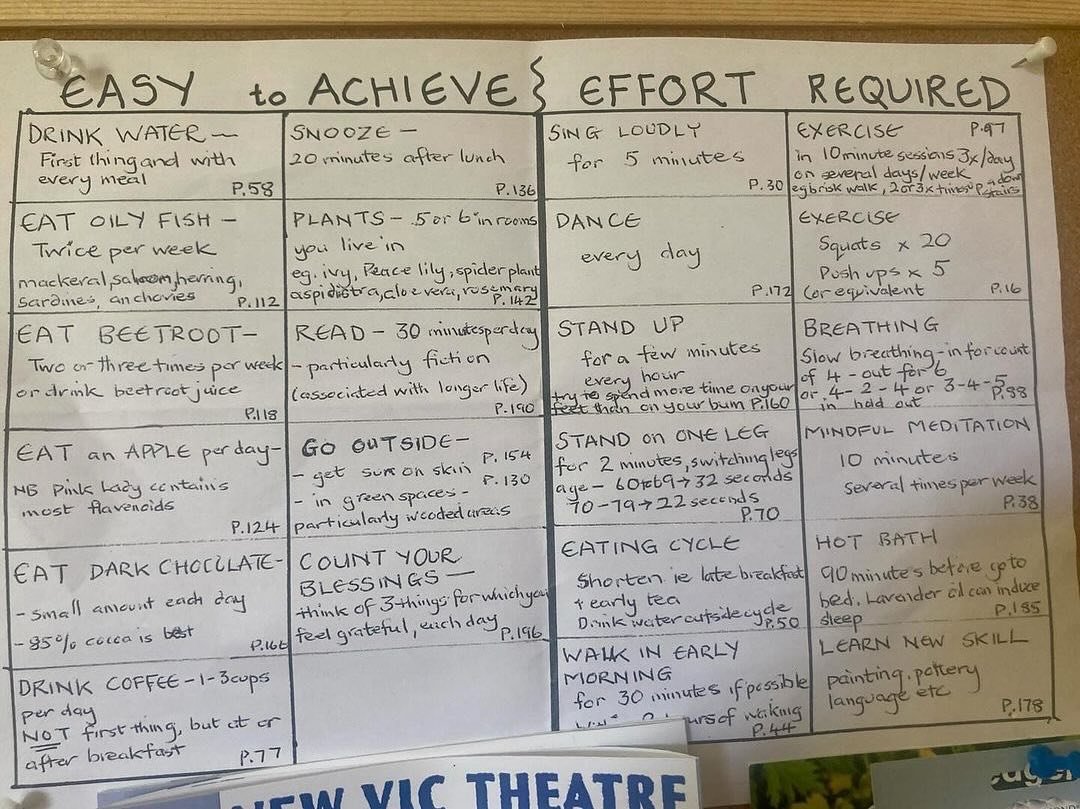 EASY to ACHIEVE
EFFORT REQUIRED
DRINK WATER —
First thing and with
every meal
P.58
EAT OILY FISH -
Twice per week
mackeral, salmon, herring,
Sardines, anchovies P.112
EAT BEETROOT-
Two or three times per week
or drink beetroot juice
P.118
EAT an APPLE per day-
NB Pink Lady contains
most flavenoids
P.124
EAT DARK CHOCOLATE-
- small amount each day
- 85% cocoa is best
P.166
DRINK COFFEE - 1-3 cups
per day
NOT first thing, but at or
after breakfast P.77
SNOOZE -
20 minutes after lunch
P.136
PLANTS - 5 or 6 in rooms
you live in
eg. ivy, Peace lily, spider plant
aspidistra, aloe vera, rosemary
P.142
READ - 30 minutes per day
- particularly fiction
(associated with longer life)
P.190
GO OUTSIDE-
- get sun on skin P.154
- in green spaces - P.130
particularly wooded areas
COUNT YOUR
BLESSINGS —
think of 3 things for which you
feel grateful, each day P.196
SING LOUDLY
for 5 minutes
P.30
DANCE
every day
P.172
STAND UP
for a few minutes
every hour
try to spend more time on your
feet than on your bum P.160
STAND on ONE LEG
for 2 minutes, switching legs
age - 60 to 69 → 32 seconds
70-79 → 22 seconds
P.70
EATING CYCLE
Shorten ie late breakfast
+ early tea
Drink water outside cycle
P.50
WALK IN EARLY
MORNING
for 30 minutes if possible
hours of waking
P.44
EXERCISE P.97
in 10 minute sessions 3x/day
on several days/week
eg brisk walk, 2 or 3x times up + down
stairs
EXERCISE
Squats x 20
Push ups x 5
(or equivalent P.16
BREATHING
Slow breathing - in for count
of 4 - out for 6
or 4-2-4 or 3-4-5
in hold out P.88
MINDFUL MEDITATION
10 minutes
several times per week
P.38
HOT BATH
90 minutes before go to
bed. Lavender oil can induce
sleep P.185
LEARN NEW SKILL
painting, pottery
language etc
P.178
NEW VIC THEATRE